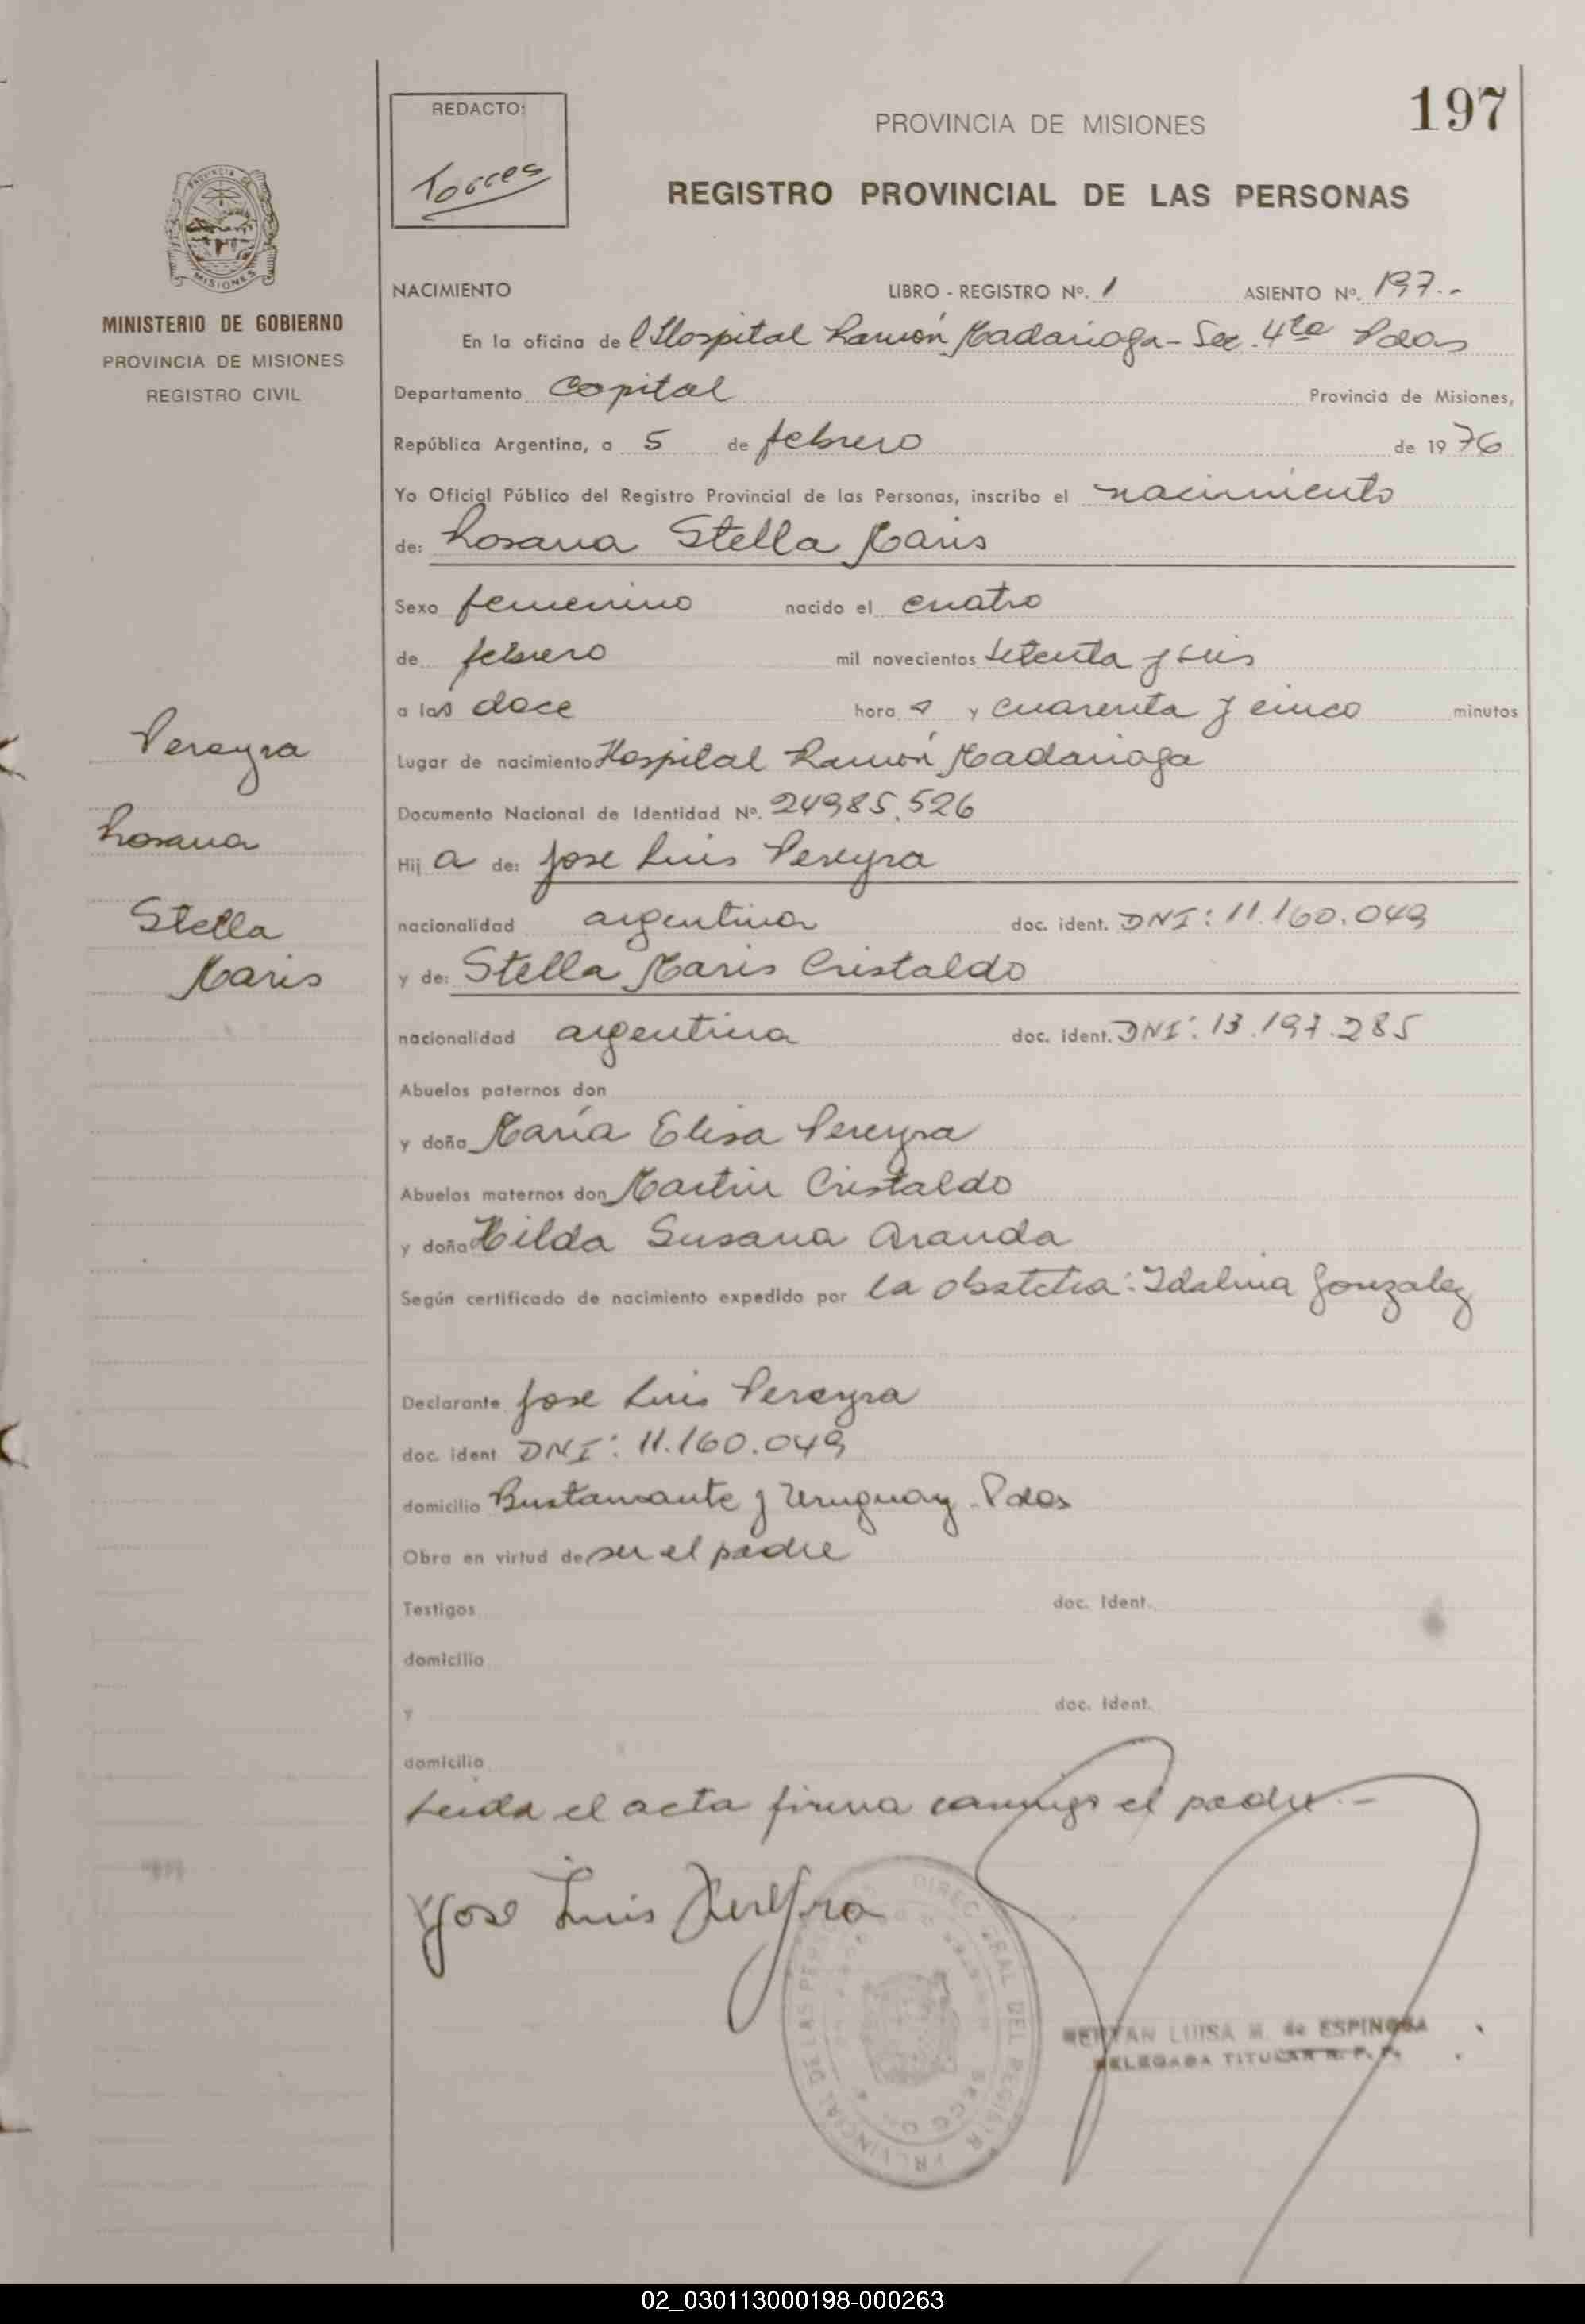 197
REDACTO:
Torres
PROVINCIA DE MISIONES
REGISTRO PROVINCIAL DE LAS PERSONAS
PROVINCIA DE
MISIONES
MINISTERIO DE GOBIERNO
PROVINCIA DE MISIONES
REGISTRO CIVIL
NACIMIENTO LIBRO - REGISTRO Nº. 1 ASIENTO Nº. 197.-
En la oficina del Hospital Ramón Madariaga - Sec. 4ta Pdas
Departamento Capital Provincia de Misiones,
República Argentina, a 5 de febrero de 1976
Yo Oficial Público del Registro Provincial de las Personas, inscribo el nacimiento
de: Rosana Stella Maris
Sexo femenino nacido el cuatro
de febrero mil novecientos setenta y seis
a las doce hora s y cuarenta y cinco minutos
Lugar de nacimiento Hospital Ramón Madariaga
Documento Nacional de Identidad Nº. 24985.526
Hij a de: Jose Luis Pereyra
nacionalidad argentina doc. ident. DNI: 11.160.049
y de: Stella Maris Cristaldo
nacionalidad argentina doc. ident. DNI: 13.197.285
Abuelos paternos don
y doña María Elisa Pereyra
Abuelos maternos don Martin Cristaldo
y doña Hilda Susana Aranda
Según certificado de nacimiento expedido por la obstetra: Idalina Gonzalez
Declarante Jose Luis Pereyra
doc. ident DNI: 11.160.049
domicilio Bustamante y Uruguay - Pdas
Obra en virtud de ser el padre
Testigos doc. Ident.
domicilio
y doc. Ident.
domicilio
Leida el acta firma conmigo el padre.-
Jose Luis Pereyra
LUISA M. de ESPINOSA
DELEGADA TITULAR R. P. P.
Pereyra
Rosana
Stella
Maris
02_030113000198-000263